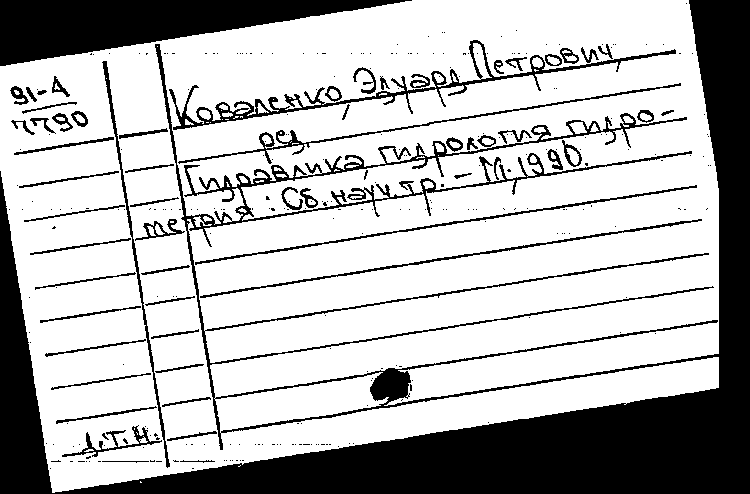 91-4
7790
Коваленко, Эдуард Петрович,
ред.
Гидравлика, гидрология гидро-
метрия : Сб. науч. тр. - М., 1990.
д.т.н.